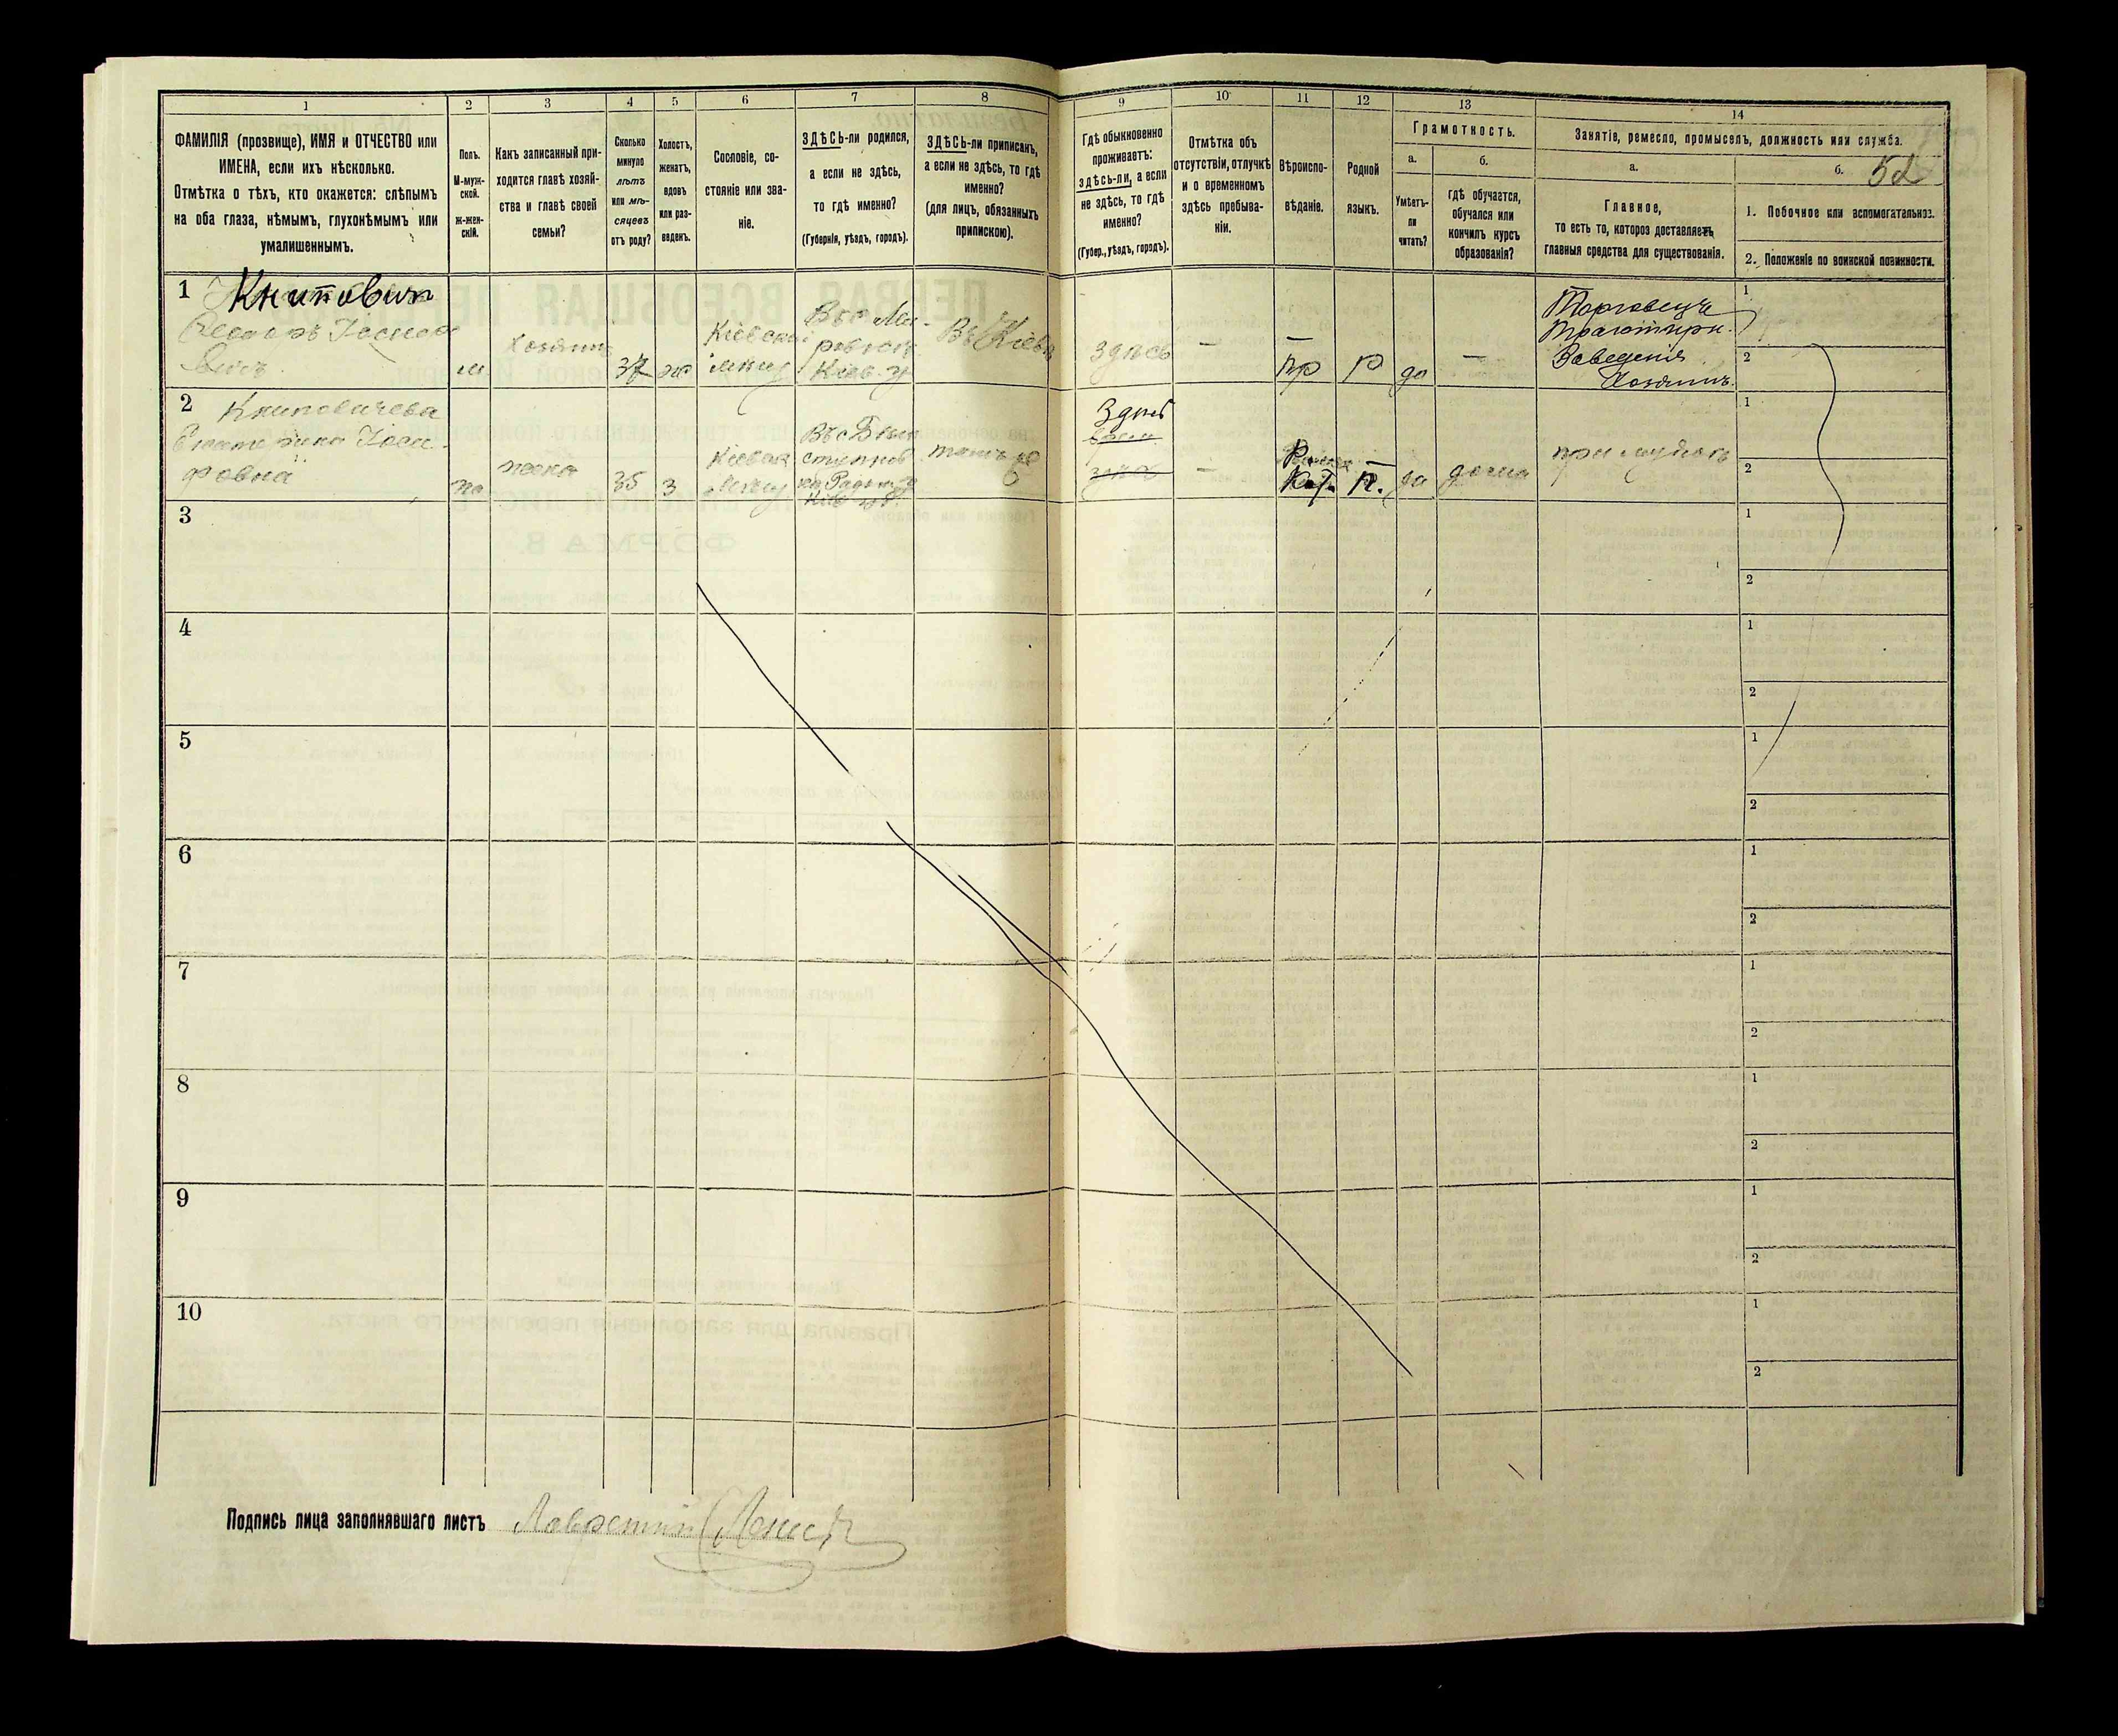 1
2
3
4
5
6
7
8
9
10
11
12
13
14
ФАМИЛІЯ (прозвище), ИМЯ и ОТЧЕСТВО или
ИМЕНА, если ихъ нѣсколько.
Отмѣтка о тѣхъ, кто окажется: слѣпымъ
на оба глаза, нѣмымъ, глухонѣмымъ или
умалишеннымъ.
Полъ.
М-муж-
ской.
ж-жен-
скій.
Какъ записанный при-
ходится главѣ хозяй-
ства и главѣ своей
семьи?
Сколько
минуло
лѣтъ
или мѣ-
сяцевъ
отъ роду?
Холостъ,
женатъ,
вдовъ
или раз-
веденъ.
Сословіе, со-
стояніе или зва-
ніе.
ЗДѢСЬ-ли родился,
а если не здѣсь,
то гдѣ именно?
(Губернія, уѣздъ, городъ).
ЗДѢСЬ-ли приписанъ,
а если не здѣсь, то гдѣ
именно?
(для лицъ, обязанныхъ
припискою).
Гдѣ обыкновенно
проживаетъ:
здѣсь-ли, а если
не здѣсь, то гдѣ
именно?
(Губер., уѣздъ, городъ).
Отмѣтка объ
отсутствіи, отлучкѣ
и о временномъ
здѣсь пребыва-
ніи.
Вѣроиспо-
вѣданіе.
Родной
языкъ.
Грамотность.
а.
Умѣетъ-
ли
читать?
б.
Гдѣ обучается,
обучался или
кончилъ курсъ
образованія?
Занятіе, ремесло, промыселъ, должность или служба.
а.
Главное,
то есть то, которое доставляетъ
главныя средства для существованія.
б.
52
1. Побочное или вспомогательное.
2. Положеніе по воинской повинности.
1
Книпович
м
Хозяинъ
37
ж
Кіевскій
Въ с
Въ Кіевѣ
здѣсь
—
пр
Р
да
—
Торговецъ
Трактирн.
Заведенія
Хозяинъ.
1
2
2 Книповичева
Екатерина Іоси-
фовна
ж
жена
35
з
Въ с
тамъ же
Здѣсь
—
Р.
Кат.
П.
да
дома
при мужѣ
1
2
3
1
2
4
1
2
5
1
2
6
1
2
7
1
2
8
1
2
9
1
2
10
1
2
Подпись лица заполнявшаго листъ